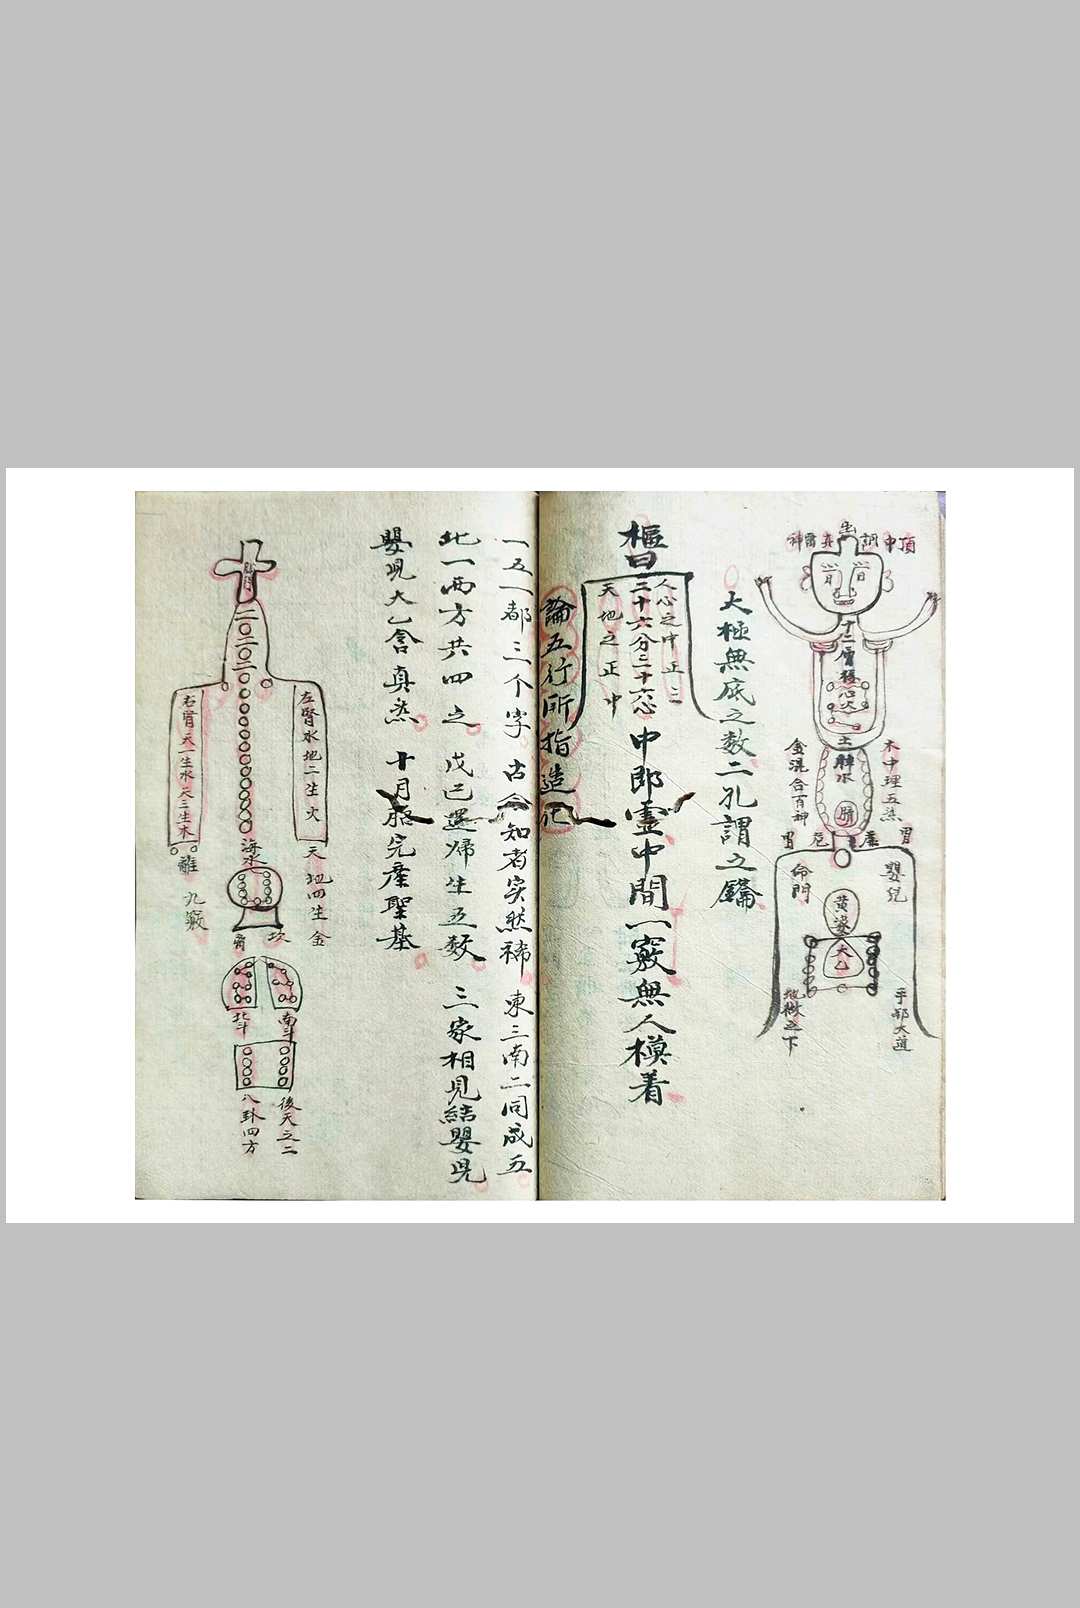 頂中
神
十二層樓
心火
土
脾水
木中理五炁
金混合百神
胃
胃
嬰兒
命門
黃婆
太乙
之下
太極無底之数二孔謂之鑰
樞曰
人心之中正三
三十六分三十六心
天地之正中
中即靈中間一竅無人模着
論五行所指造化
一五一都三个字古今知者实然稀東三南二同成五
北一西方共四之戊己還归生五数三家相見結嬰児
嬰児太乙含真炁十月胎完産聖基
二〇二〇二
左腎水地二生火
右腎天一生水天三生木
天地四生金
離
九竅
海水
坎
南斗
北斗
後天之二
八卦四方